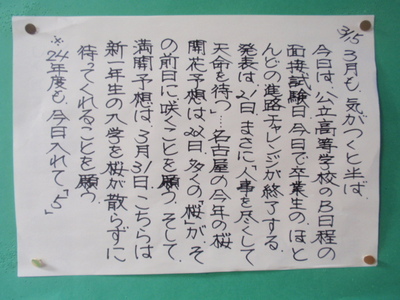 3/15
3月も、気がつくと半ば、
今日は、公立高等学校のB日程の
面接試験日、今日で卒業生のほと
んどの進路チャレンジが終了する。
発表は21日、まさに「人事を尽くして
天命を待つ…。名古屋の今年の桜
開花予想は22日、多くの「桜」が、そ
の前日に咲くことを願う。そして、
満開予想は、3月31日、こちらは
新一年生の入学を桜が散らずに
待ってくれることを願う。
※24年度も、今日入れて、「5」